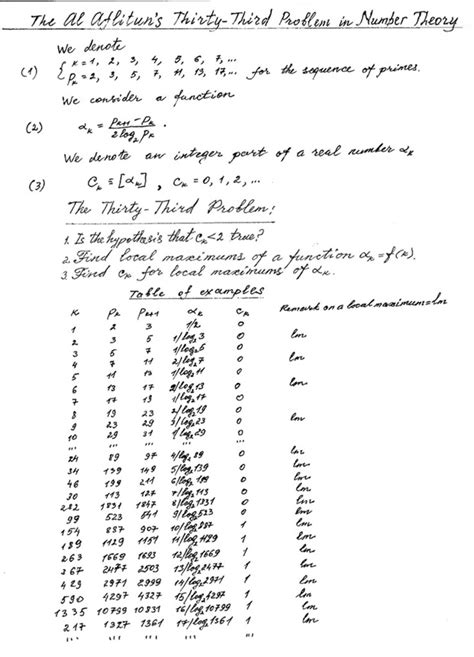 The Al Aflitun's Thirty-Third Problem in Number Theory
We denote
(1) { k = 1, 2, 3, 4, 5, 6, 7, ...
Pk = 2, 3, 5, 7, 11, 13, 17, ... for the sequence of primes.
We consider a function
(2) αk = (Pk+1 - Pk) / (2 log2 Pk) .
We denote an integer part of a real number αk
(3) Ck ≡ [αk] , Ck = 0, 1, 2, ...
The Thirty-Third Problem:
1. Is the hypothesis that Ck<2 true?
2. Find local maximums of a function αk = f(k).
3. Find Ck for local maximums of αk.
Table of examples
k Pk Pk+1 αk Ck Remark on a local maximum = lm
1 2 3 1/2 0
2 3 5 1/log2 3 0 lm
3 5 7 1/log2 5 0
4 7 11 2/log2 7 0 lm
5 11 13 1/log2 11 0
6 13 17 2/log2 13 0 lm
7 17 19 1/log2 17 0
8 19 23 2/log2 19 0
9 23 29 3/log2 23 0 lm
10 29 31 1/log2 29 0
... ... ... ... ...
24 89 97 4/log2 89 0 lm
34 139 149 5/log2 139 0 lm
46 199 211 6/log2 199 0 lm
30 113 127 7/log2 113 0 lm
282 1831 1847 8/log2 1831 0 lm
99 523 541 9/log2 523 0 lm
154 887 907 10/log2 887 1 lm
189 1129 1151 11/log2 1129 1 lm
263 1669 1693 12/log2 1669 1 lm
367 2477 2503 13/log2 2477 1 lm
429 2971 2999 14/log2 2971 1 lm
590 4297 4327 15/log2 4297 1 lm
1335 10799 10831 16/log2 10799 1 lm
217 1327 1361 17/log2 1361 1 lm
... ... ... ... ... ...